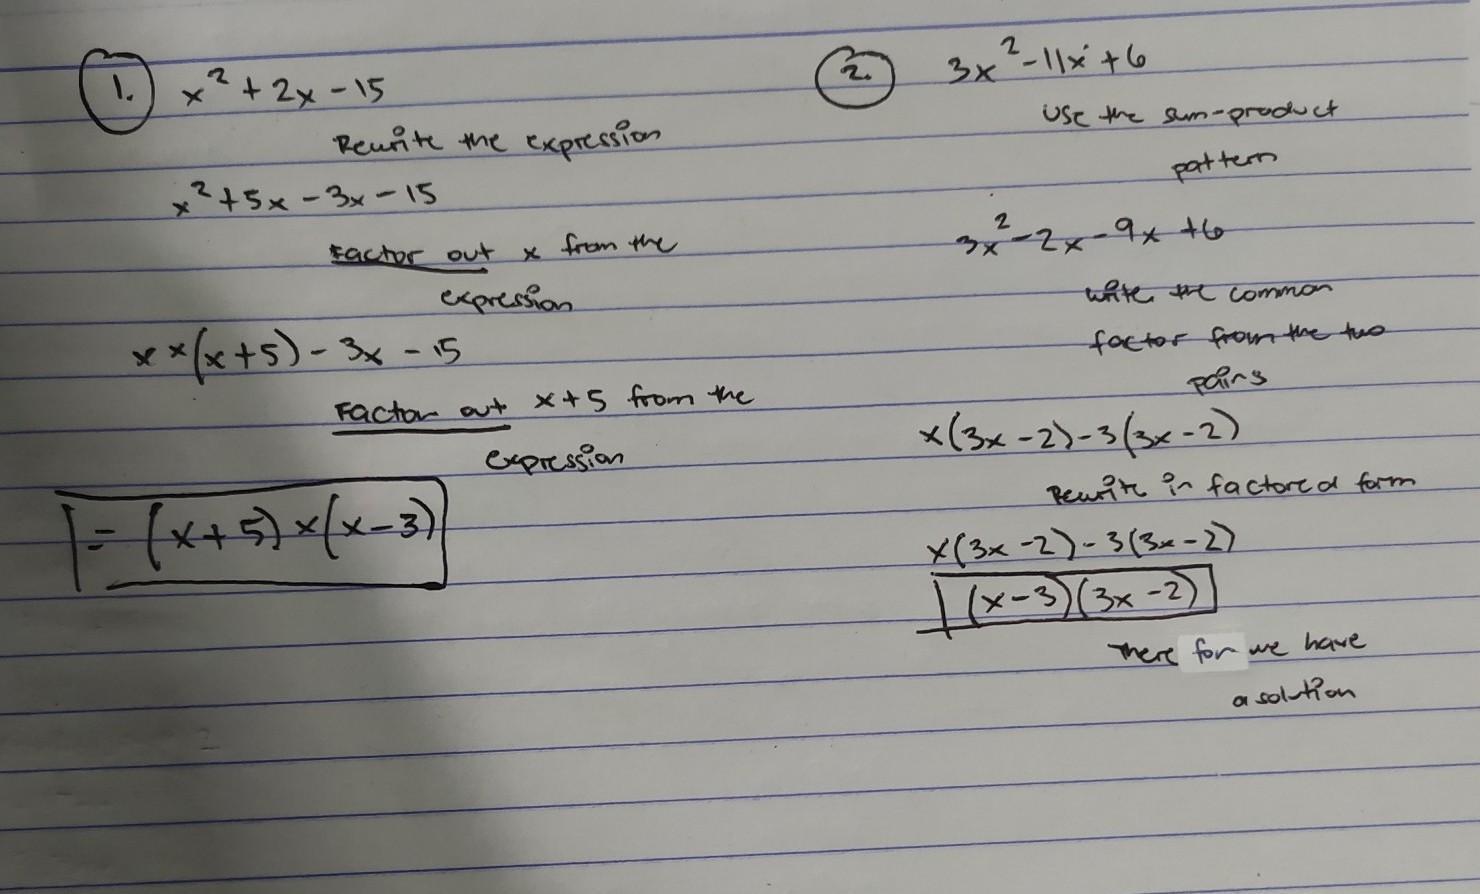 1. x² + 2x - 15
Rewrite the expression
x² + 5x - 3x - 15
Factor out x from the
expression
x × (x + 5) - 3x - 15
Factor out x + 5 from the
expression
= (x + 5) × (x - 3)
2. 3x² - 11x + 6
Use the sum-product
pattern
3x² - 2x - 9x + 6
write the common
factor from the two
pairs
x(3x - 2) - 3(3x - 2)
Rewrite in factored form
x(3x - 2) - 3(3x - 2)
(x - 3)(3x - 2)
There for we have
a solution